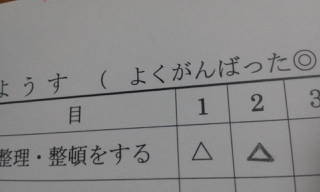 ようす（よくがんばった◎
目 1 2 3
整理・整頓をする △ △